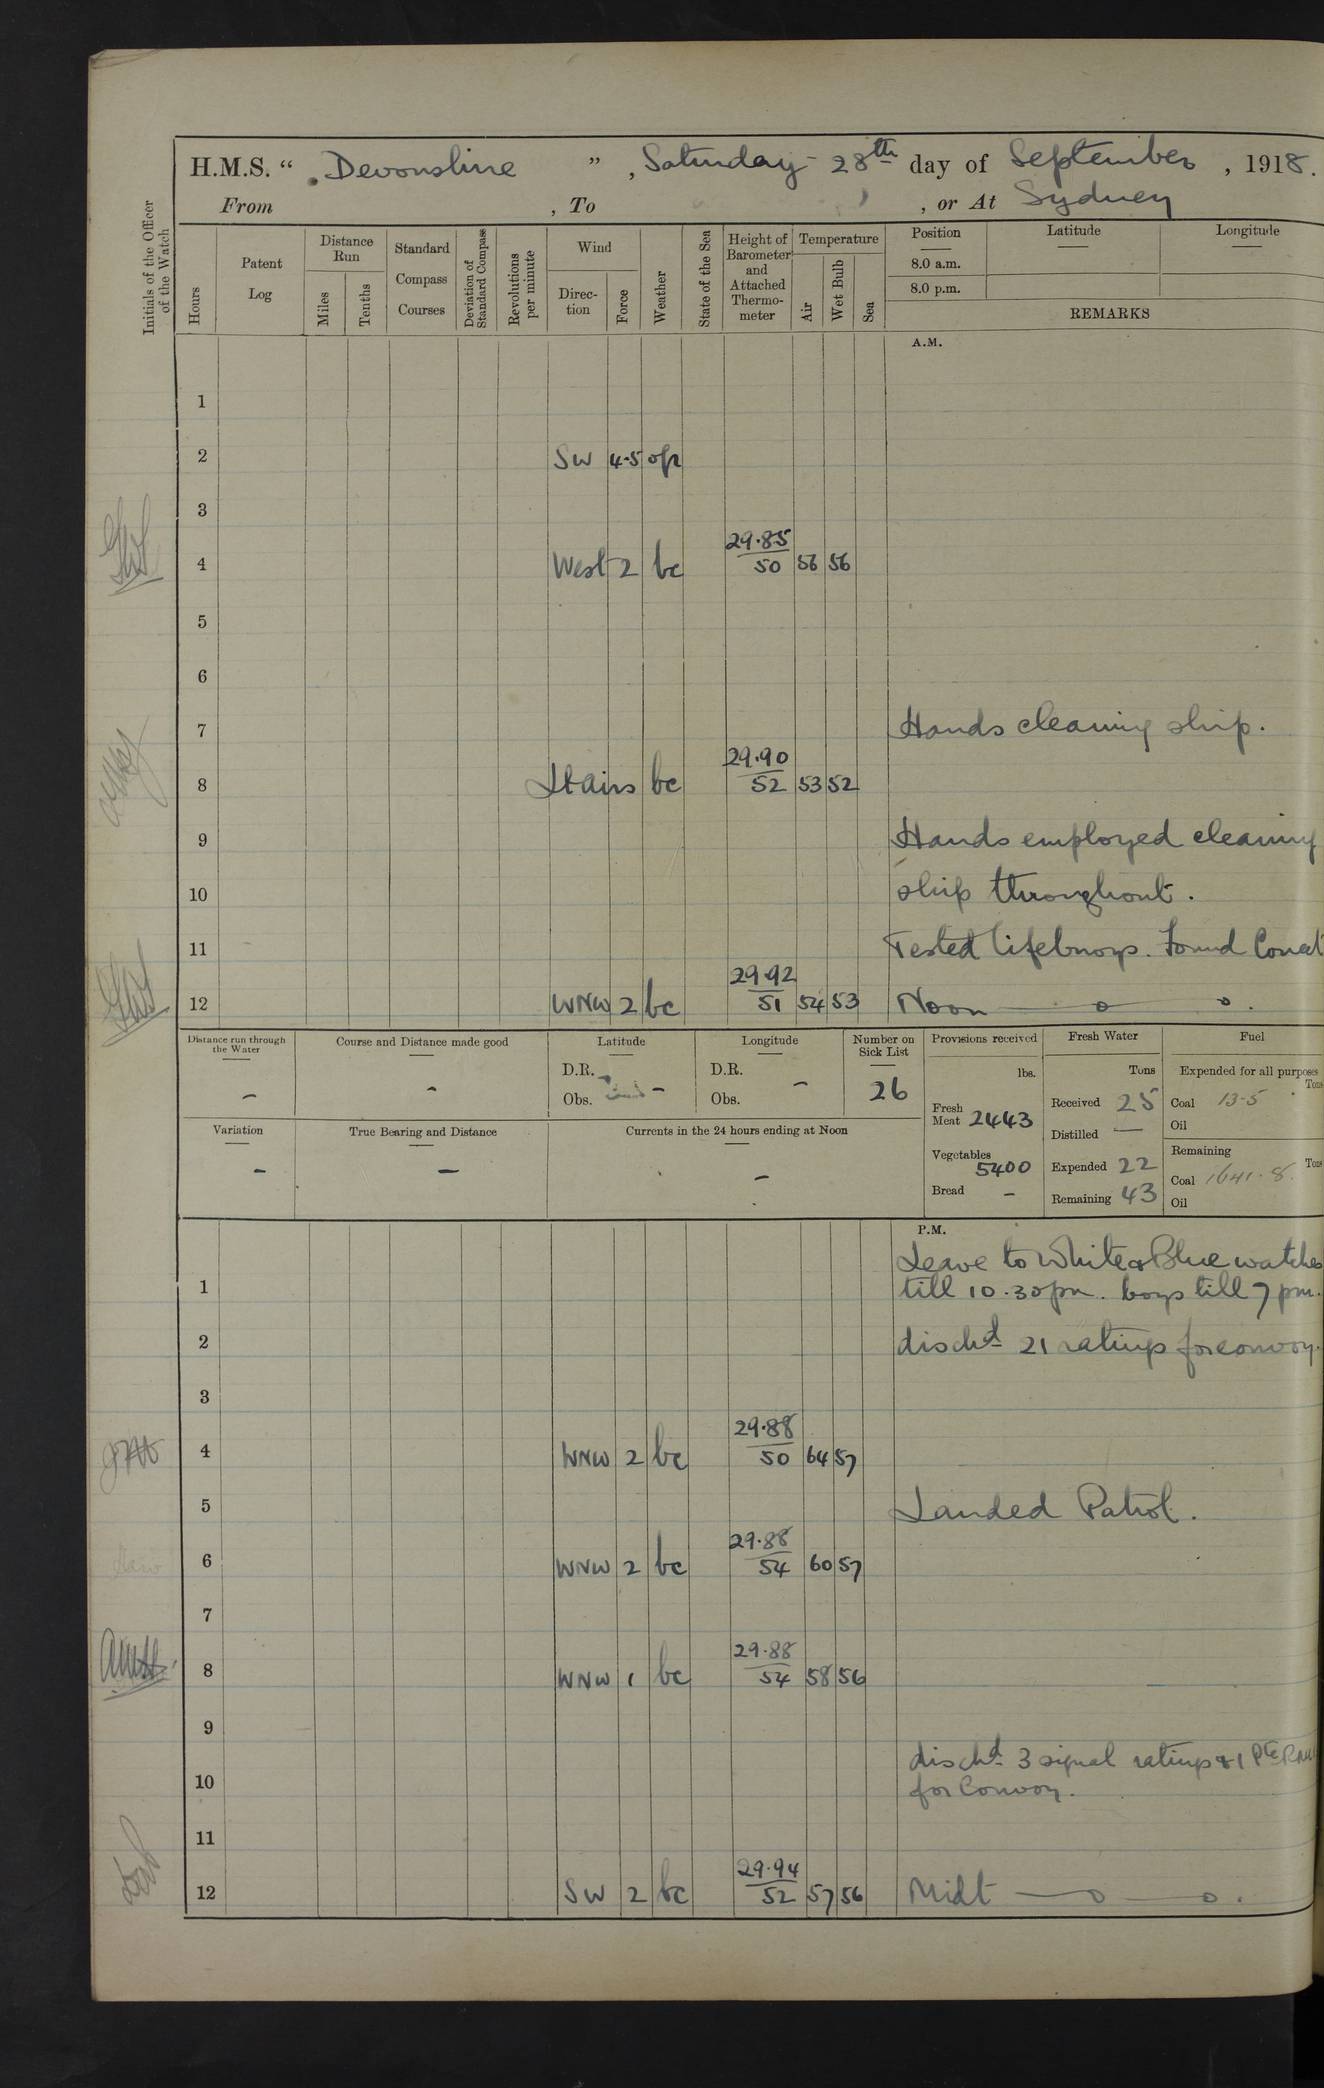 H.M.S. “ Devonshire ” , Saturday 28th day of September , 1918.
From , To , or At Sydney
Initials of the Officer of the Watch
Hours
Patent Log
Distance Run
Miles
Tenths
Standard Compass Courses
Deviation of Standard Compass
Revolutions per minute
Wind
Direc-tion
Force
Weather
State of the Sea
Height of Barometer and Attached Thermo-meter
Temperature
Air
Wet Bulb
Sea
Position Latitude Longitude
8.0 a.m.
8.0 p.m.
REMARKS
A.M.
1
2 SW 4-5 opr
3
29.85
4 West 2 bc 50 56 56
5
6
7 Hands cleaning ship.
29.90
8 Lt airs bc 52 53 52
9 Hands employed cleaning
10 ship throughout.
11 Tested lifebuoys. Found Correct
29.92
12 WNW 2 bc 51 54 53 Noon
Distance run through the Water
-
Course and Distance made good
-
Latitude
D.R. -
Obs. -
Longitude
D.R. -
Obs.
Number on Sick List
26
Provisions received
lbs.
Fresh Meat 2443
Vegetables 5400
Bread -
Fresh Water
Tons
Received 25
Distilled —
Expended 22
Remaining 43
Fuel
Expended for all purposes
Tons
Coal 13.5
Oil
Remaining
Tons
Coal 1641.8
Oil
Variation
-
True Bearing and Distance
-
Currents in the 24 hours ending at Noon
-
P.M.
Leave to White & Blue watches
1 till 10.30pm. boys till 7 pm.
2 dischd 21 ratings for convoy.
3
29.88
4 WNW 2 bc 50 64 57
5 Landed Patrol.
29.88
6 WNW 2 bc 54 60 57
7
29.88
8 WNW 1 bc 54 58 56
9
dischd 3 signal ratings & 1 Pte RMLI
10 for Convoy.
11
29.94
12 SW 2 bc 52 57 56 Midt